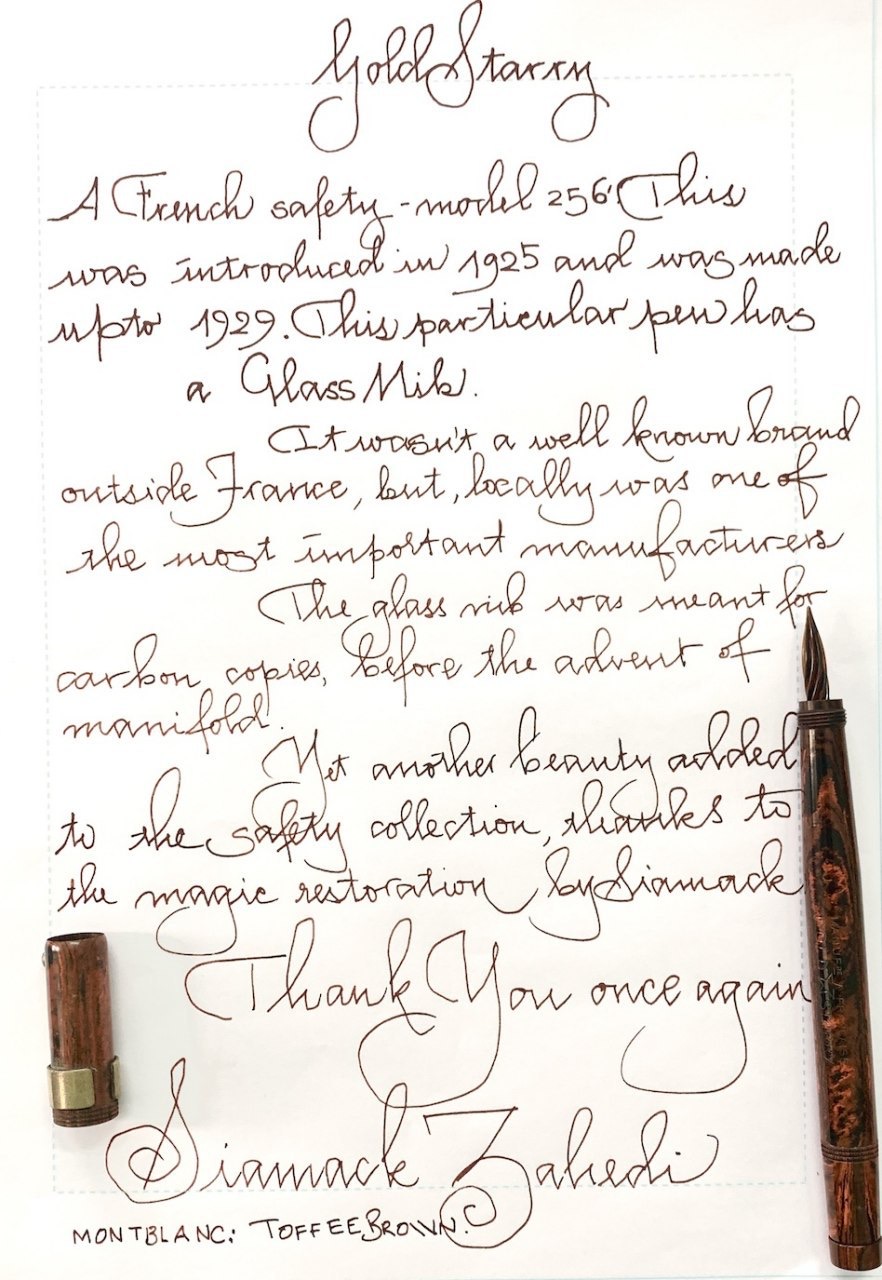 Gold Starry
A French safety - model 256. This
was introduced in 1925 and was made
upto 1929. This particular pen has
a Glass Nib.
It wasn't a well known brand
outside France, but, locally was one of
the most important manufacturers
The glass nib was meant for
carbon copies, before the advent of
manifold.
Yet another beauty added
to the safety collection, thanks to
the magic restoration by Siamack
Thank You once again
Siamack Zahedi
MONTBLANC: TOFFEE BROWN.